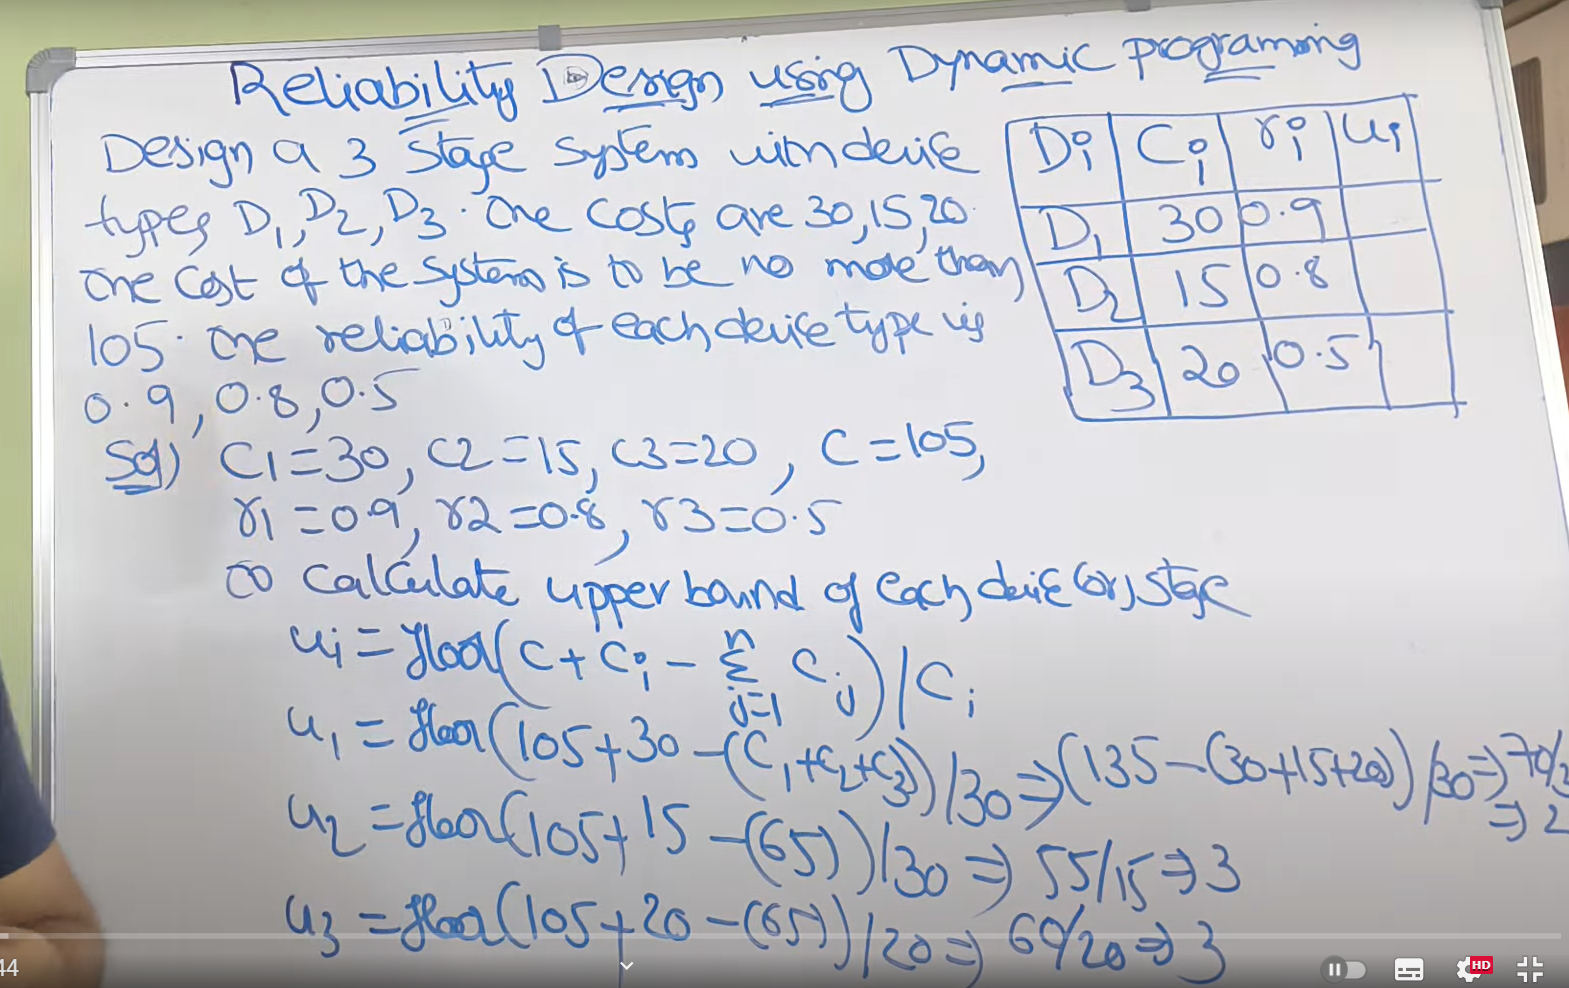 Reliability Design using Dynamic programing
Design a 3 stage system with device
types D1, D2, D3. The costs are 30, 15, 20.
The cost of the system is to be no more than
105. The reliability of each device type is
0.9, 0.8, 0.5
Di Ci ri ui
D1 30 0.9
D2 15 0.8
D3 20 0.5
Sol) C1=30, C2=15, C3=20, C=105,
r1=0.9, r2=0.8, r3=0.5
calculate upper bound of each device (or) stage
ui = floor(C + Ci - Σ j=1 n Cj) / Ci
u1 = floor(105+30-(C1+C2+C3))/30 ⇒ (135-(30+15+20))/30 ⇒ 70/3
⇒ 2
u2 = floor(105+15-(65))/30 ⇒ 55/15 ⇒ 3
u3 = floor(105+20-(65))/20 ⇒ 60/20 ⇒ 3
44
HD